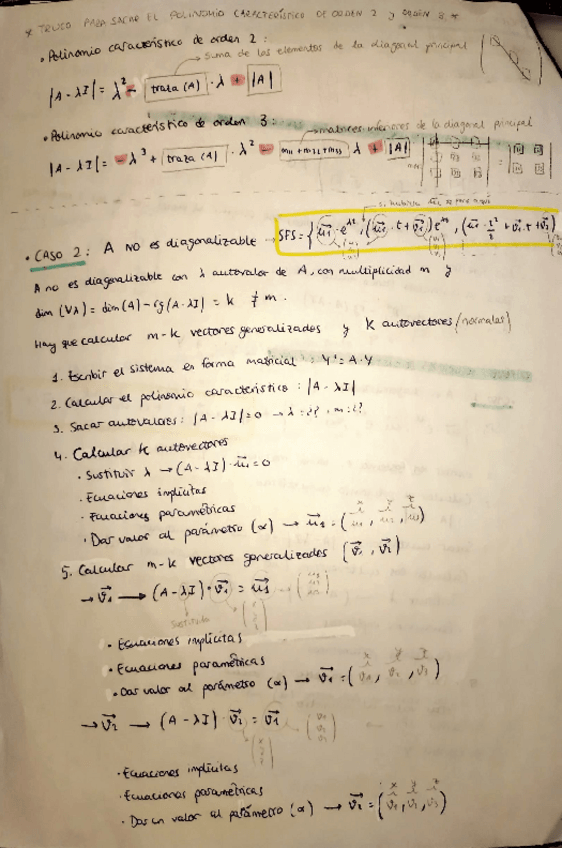 * TRUCO PARA SACAR EL POLINOMIO CARACTERÍSTICO DE ORDEN 2 y ORDEN 3 *
• Polinomio característico de orden 2:
→ suma de los elementos de la diagonal principal
|A - λI| = λ² - traza (A) · λ + |A|
• Polinomio característico de orden 3:
→ matrices inferiores de la diagonal principal
|A - λI| = - λ³ + traza (A) · λ² - m11 + m22 + m33 λ + |A|
• CASO 2: A NO es diagonalizable → SFS = { u1 · e^λt, (u1 · t + v1) e^λt, (u1 · t²/2 + v1 · t + v2)
A no es diagonalizable con λ autovalor de A, con multiplicidad m y
dim (Vλ) = dim (A) - rg (A - λI) = k ≠ m.
Hay que calcular m - k vectores generalizados y k autovectores (normales)
1. Escribir el sistema en forma matricial: Y' = A · Y
2. Calcular el polinomio característico: |A - λI|
3. Sacar autovalores: |A - λI| = 0 → λ = ¿?, m = ¿?
4. Calcular k autovectores
• Sustituir λ → (A - λI) · u1 = 0
• Ecuaciones implícitas
• Ecuaciones paramétricas
• Dar valor al parámetro (α) → u1 = (u1, u2, u3)
5. Calcular m - k vectores generalizados (v1, v2)
→ v1 → (A - λI) · v1 = u1
Sustituido
• Ecuaciones implícitas
• Ecuaciones paramétricas
• Dar valor al parámetro (α) → v1 = (v1, v2, v3)
→ v2 → (A - λI) · v2 = v1
• Ecuaciones implícitas
• Ecuaciones paramétricas
• Dar un valor al parámetro (α) → v2 = (v1, v2, v3)